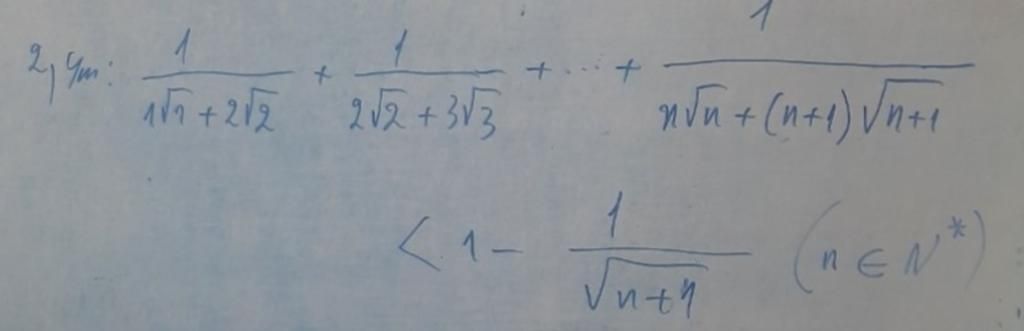 2, Cm: 1/(1√1 + 2√2) + 1/(2√2 + 3√3) + ... + 1/(n√n + (n+1)√(n+1))
< 1 - 1/√(n+1) (n ∈ N*)